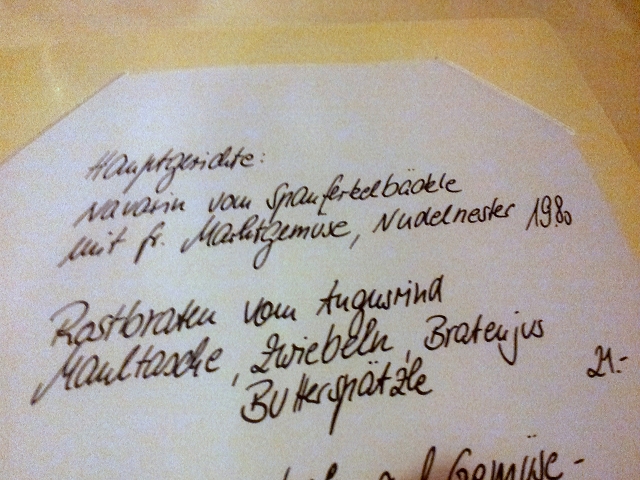 Hauptgerichte:
Navarin vom Spanferkelbäckle
mit fr. Marktgemüse, Nudelnester 19.80
Rostbraten vom Angusrind
Maultasche, Zwiebeln, Bratenjus
Butterspätzle 21.-
Gemüse-